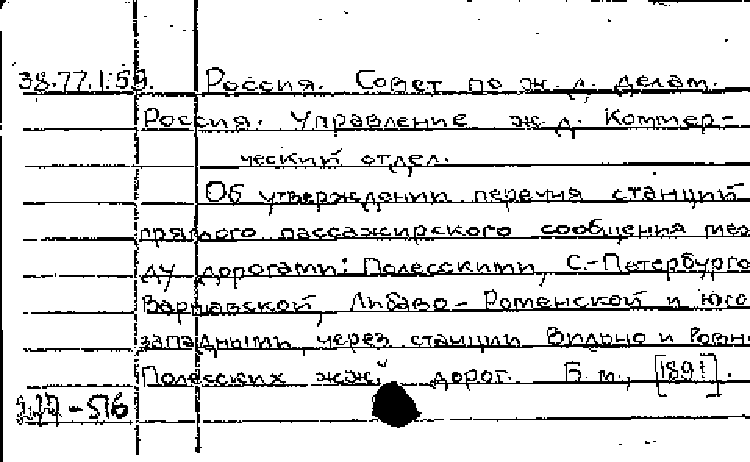 38.77.1.59. Россия. Совет по ж. д. делам.
Россия. Управление ж. д. Коммер-
ческий отдел.
Об утверждении перечня станций
прямого пассажирского сообщения меж
ду дорогами: Полесскими, С.-Петербурго
Варшавской, Либаво-Роменской и Юго
западными, через станции Вильно и Ровн
Полесских ж.ж. дорог. Б.м., [1891].
-516